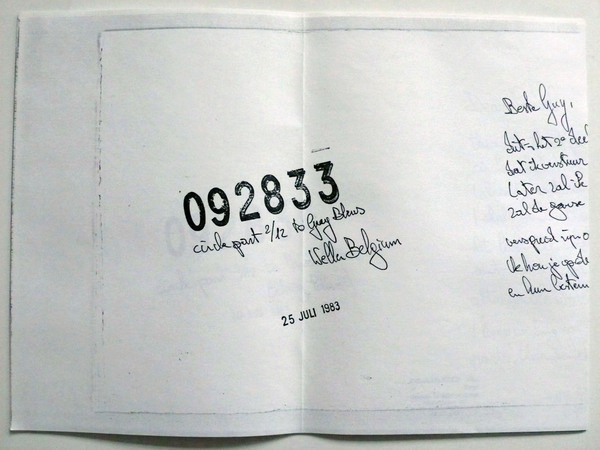 092833
circle part 2/12 to Guy Bleus
Wellen Belgium
25 JULI 1983
Beste Guy,
dit is het 2e deel
dat ik verstuur
Later zal ik
zal de ganse
verspreid zijn o
Ik hou je op de
en hun bestem